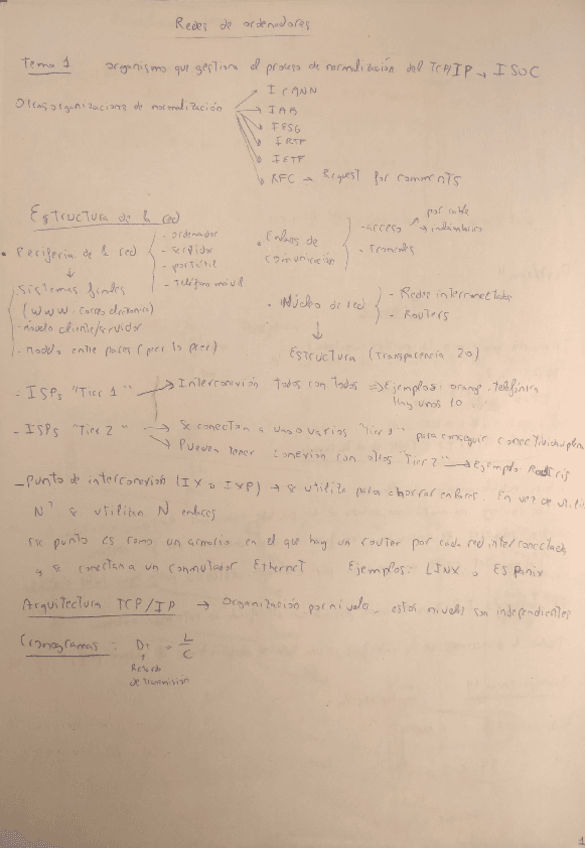 Redes de ordenadores
Tema 1 organismo que gestiona el proceso de normalización del TCP/IP → ISOC
Otras organizaciones de normalización
ICANN
IAB
IESG
IRTF
IETF
RFC → Request for comments
Estructura de la red
• Periferia de la red
- ordenador
- servidor
- portátil
- Teléfono móvil
↓
Sistemas finales
(WWW, correo electrónico)
- modelo cliente/servidor
- modelo entre pares (peer to peer)
• Enlaces de comunicación
- acceso
por cable
inalámbrico
- Troncales
• Núcleo de red
- Redes interconectadas
- Routers
↓
Estructura (Transparencia 20)
- ISPs "Tier 1" → Interconexión todos con todos → Ejemplos: orange, telefónica
Hay unos 10
- ISPs "Tier 2" → Se conectan a uno o varios "Tier 1" para conseguir conectividad plena
→ Pueden tener conexión con otros "Tier 2" → Ejemplo
- Punto de interconexión (IX o IXP) → se utiliza para ahorrar enlaces. En vez de
N² se utilizan N enlaces
ese punto es como un armario en el que hay un router por cada red interconectada
y se conectan a un conmutador Ethernet Ejemplos: LINX, ESpanix
Arquitectura TCP/IP → Organización por niveles, estos niveles son independientes
Cronogramas: Dt = L/C
↑
Retardo
de transmisión
1